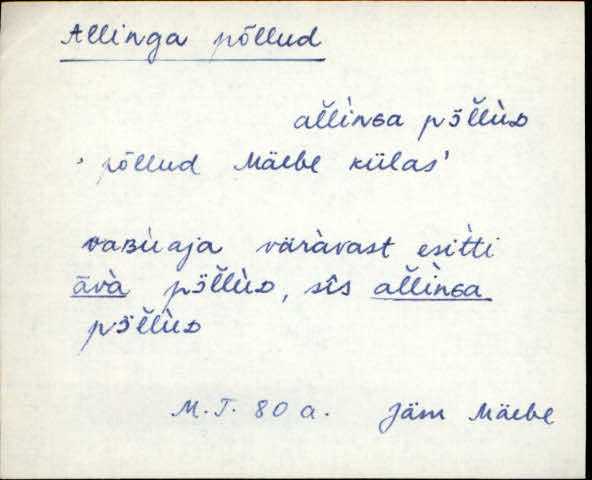 Allinga põllud
al̆lìnɢa põl̆lùᴅ
'põllud Mäebe külas'
vaʙùaja väràvast esìtti
āvà põl̆lùᴅ, sīs al̆lìnɢa
põl̆lùᴅ
M.T. 80 a. Jäm Mäebe